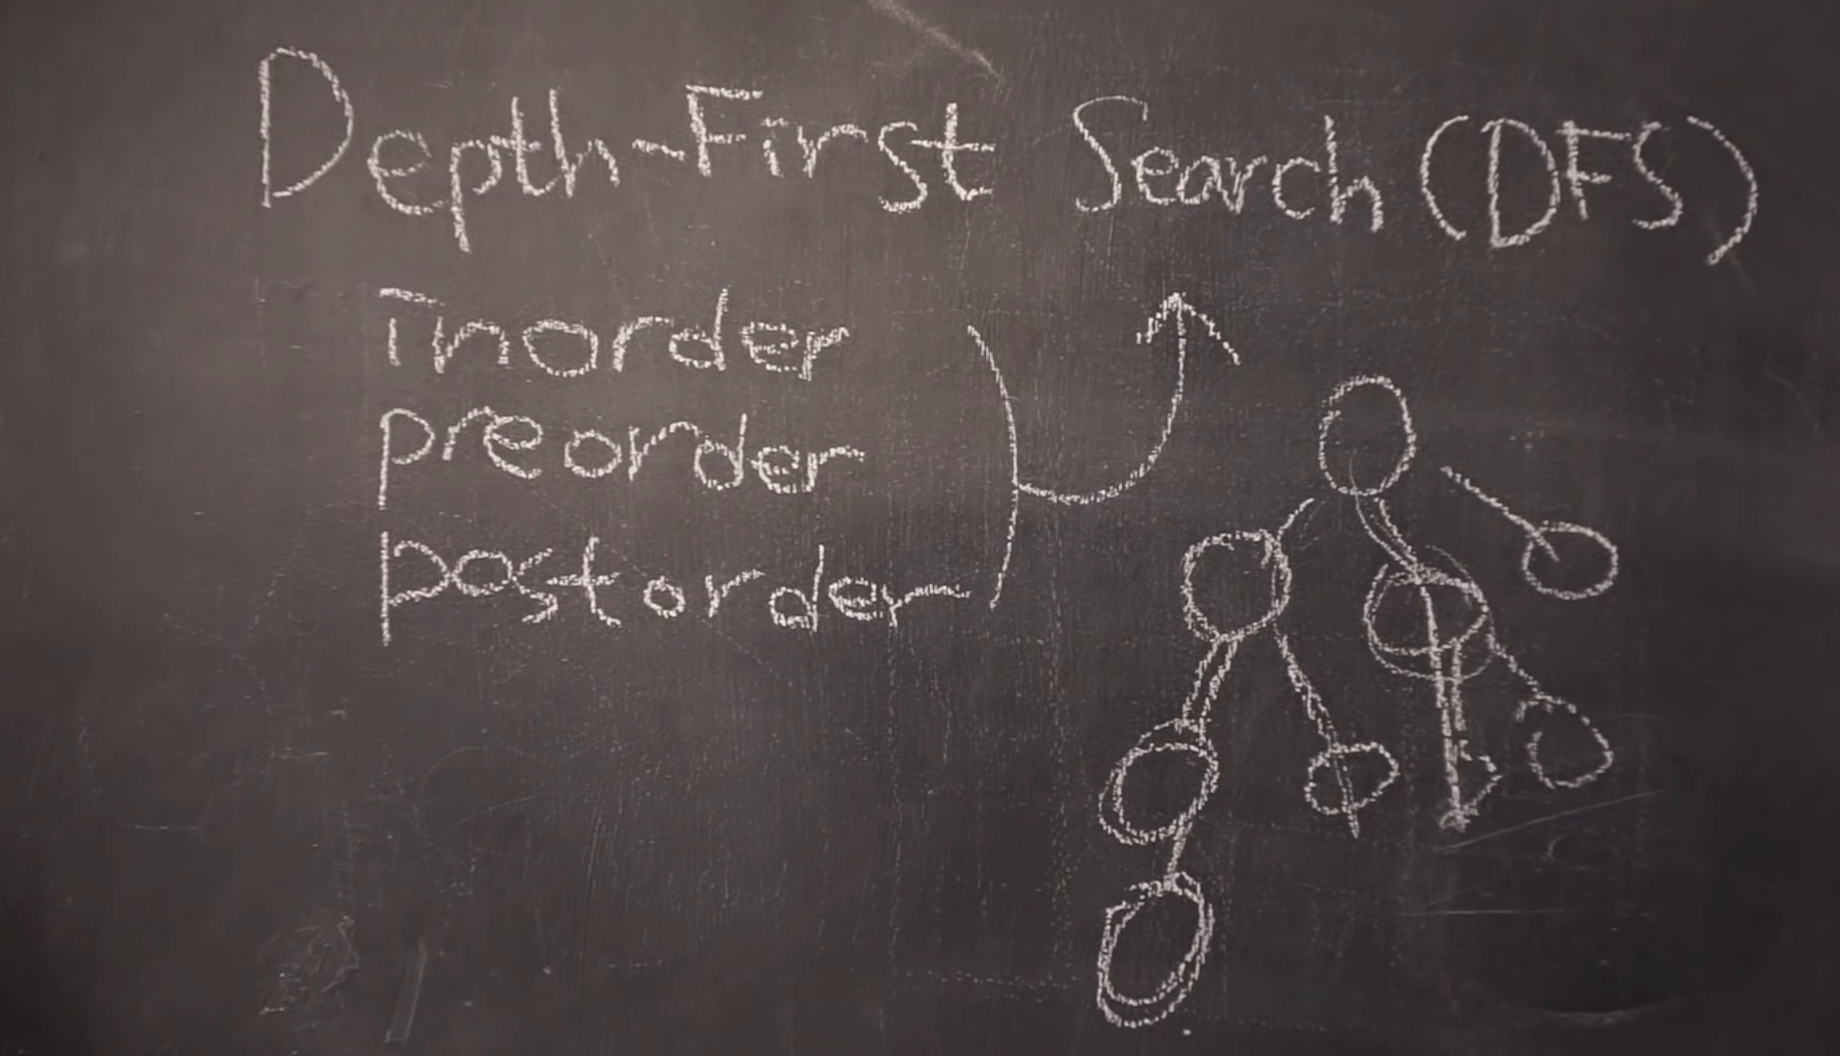 Depth-First Search (DFS)
inorder
preorder
postorder